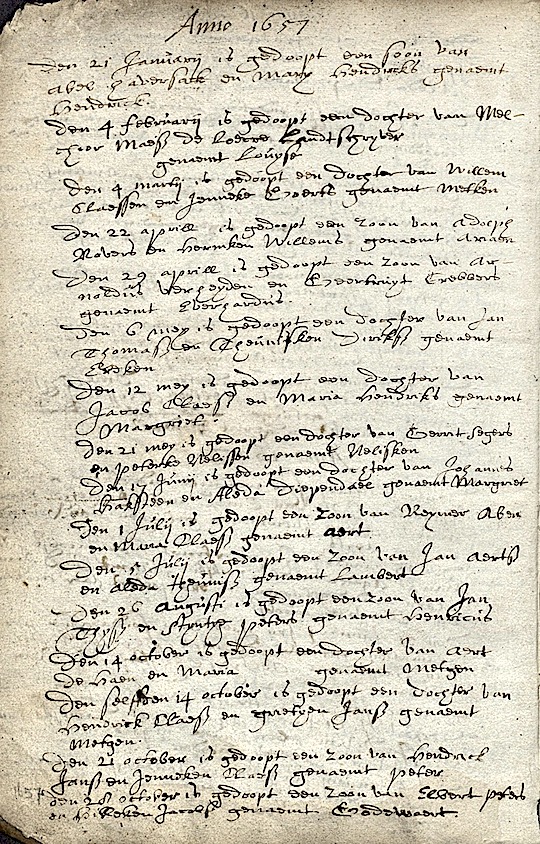 Anno 1657
Den 21 Januarij is gedoopt een soon van
Abel Haversack en Mary Hendricks genaemt
Hendrick.
Den 4 februarij is gedoopt een dochter van Mel-
chior Maess de Loecre Landtschryver
genaemt Louyse
Den 4 martij is gedoopt een dochter van Willem
Claessen en Jenneke Everts genaemt Metken
Den 22 aprill is gedoopt een zoon van Adolph
Rovers en Hermken Willems genaemt Ariaen
Den 29 aprill is gedoopt een zoon van Ar
noldus Verheyden en Geertruyt Crebbers
genaemt Everhardus.
Den 6 mey is gedoopt een dochter van Jan
Thomass en Theunisken Dirckss genaemt
Eerken
Den 12 mey is gedoopt een dochter van
Jacob Claess en Maria Hendricks genaemt
Margriet.
Den 21 mey is gedoopt een dochter van Gerrit Segers
en Peterke Nelissen genaemt Nelisken
Den 17 Junij is gedoopt een dochter van Johannes
en Aleda Diependael genaemt Margriet
Den 1 Julij is gedoopt een zoon van Reymer Aben
en Maria Claess genaemt aert
Den Julij is gedoopt een zoon van Jan Aertss
en Aleda Theuniss genaemt Lambert
Den 26 Augusti is gedoopt een zoon van Jan
Thyss en Peters genaemt Henricus
Den 14 october is gedoopt een dochter van Aert
de Haen en Maria genaemt Metgen
Den selffden 14 october is gedoopt een dochter van
Hendrick Claess en Grietgen Janss genaemt
Metgen.
Den 21 october is gedoopt een zoon van Hendrick
Janss en Jenneken Claess genaemt Peter
Den 28 october is gedoopt een zoon van Elbert Peters
en Hilleken Jacobs genaemt Godewaert